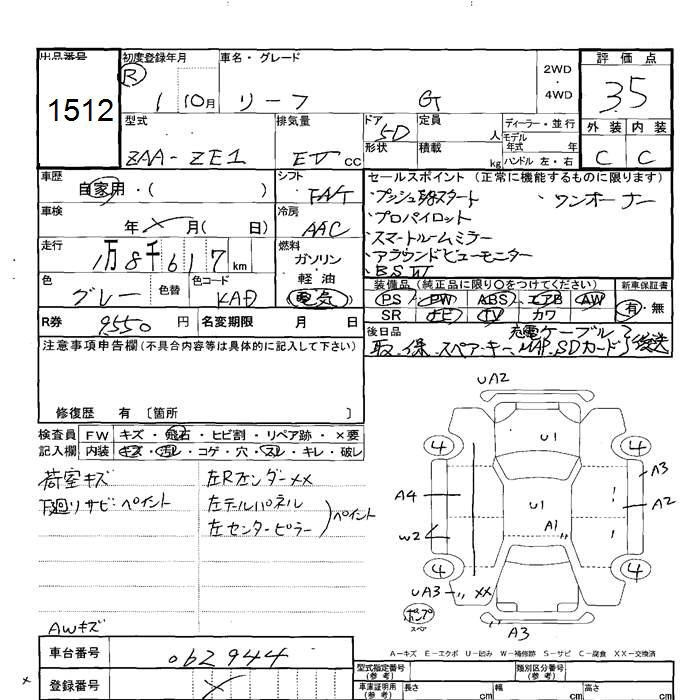 出品番号 初度登録年月 車名・グレード 2WD・4WD 評価点
1512 R 1 10月 リーフ G 35
型式 排気量 ドア 5D 定員 人 ディーラー・並行 外装 内装
ZAA-ZE1 EV cc 形状 積載 kg モデル年式 年 ハンドル 左・右 C C
車歴 自家用・( ) シフト FAT セールスポイント (正常に機能するものに限ります)
・プッシュスタート ・ワンオーナー
・プロパイロット
・スマートルームミラー
・アラウンドビューモニター
・BSW
車検 年 月( 日) 冷房 AAC
走行 1万8千617km 燃料 ガソリン・軽油・電気
色 グレー 色替 色コード KAD
装備品 (純正品に限り○をつけてください) 新車保証書
PS PW ABS エアB AW 有・無
SR ナビ TV カワ
R券 9550円 名変期限 月 日
後日品 充電ケーブル
取、保、スペアキー、MAP、SDカード 後送
注意事項申告欄(不具合内容等は具体的に記入して下さい)
修復歴 有 〔箇所 〕
検査員記入欄 FW キズ・飛石・ヒビ割・リペア跡・×要
内装 キズ・汚レ・コゲ・穴・スレ・キレ・破レ
荷室キズ
下廻リサビペイント
左Rフェンダー××
左テールパネル
左センターピラー
ペイント
UA2
U1
4 4
A3
A4 U1 A2
W2 A1
4 4
UA3 ××
ポンプ
スペア
A3
A-キズ E-エクボ U-凹み W-補修跡 S-サビ C-腐食 XX-交換済
AWキズ
車台番号 062944
登録番号
型式指定番号(参考) 類別区分番号(参考)
車庫証明用(参考) 長さ cm 幅 cm 高さ cm